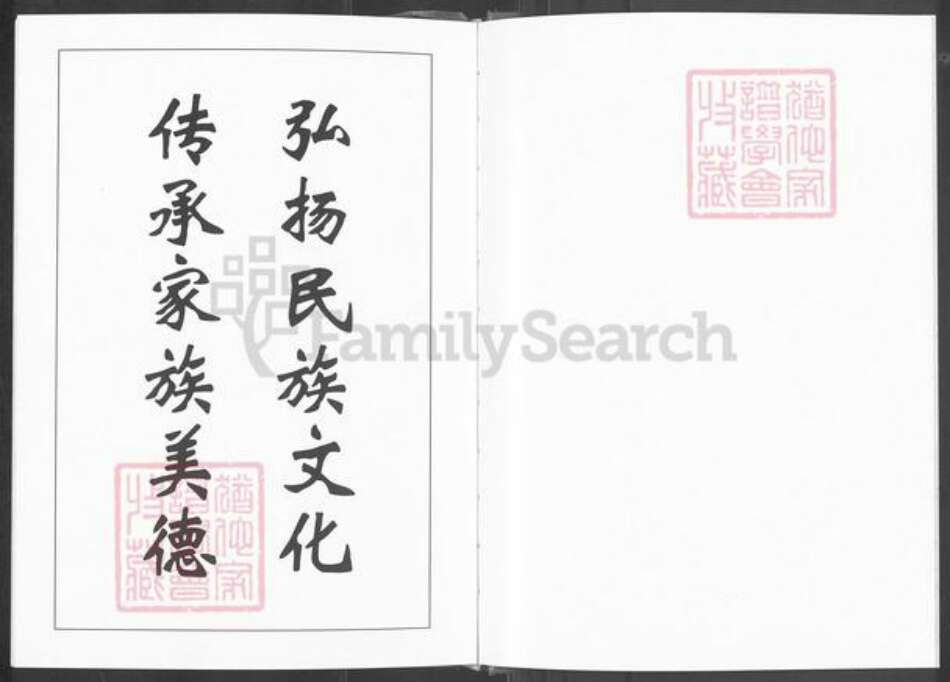 弘扬民族文化
传承家族美德
猶他家
譜學會
收藏
猶他家
譜學會
收藏
FamilySearch